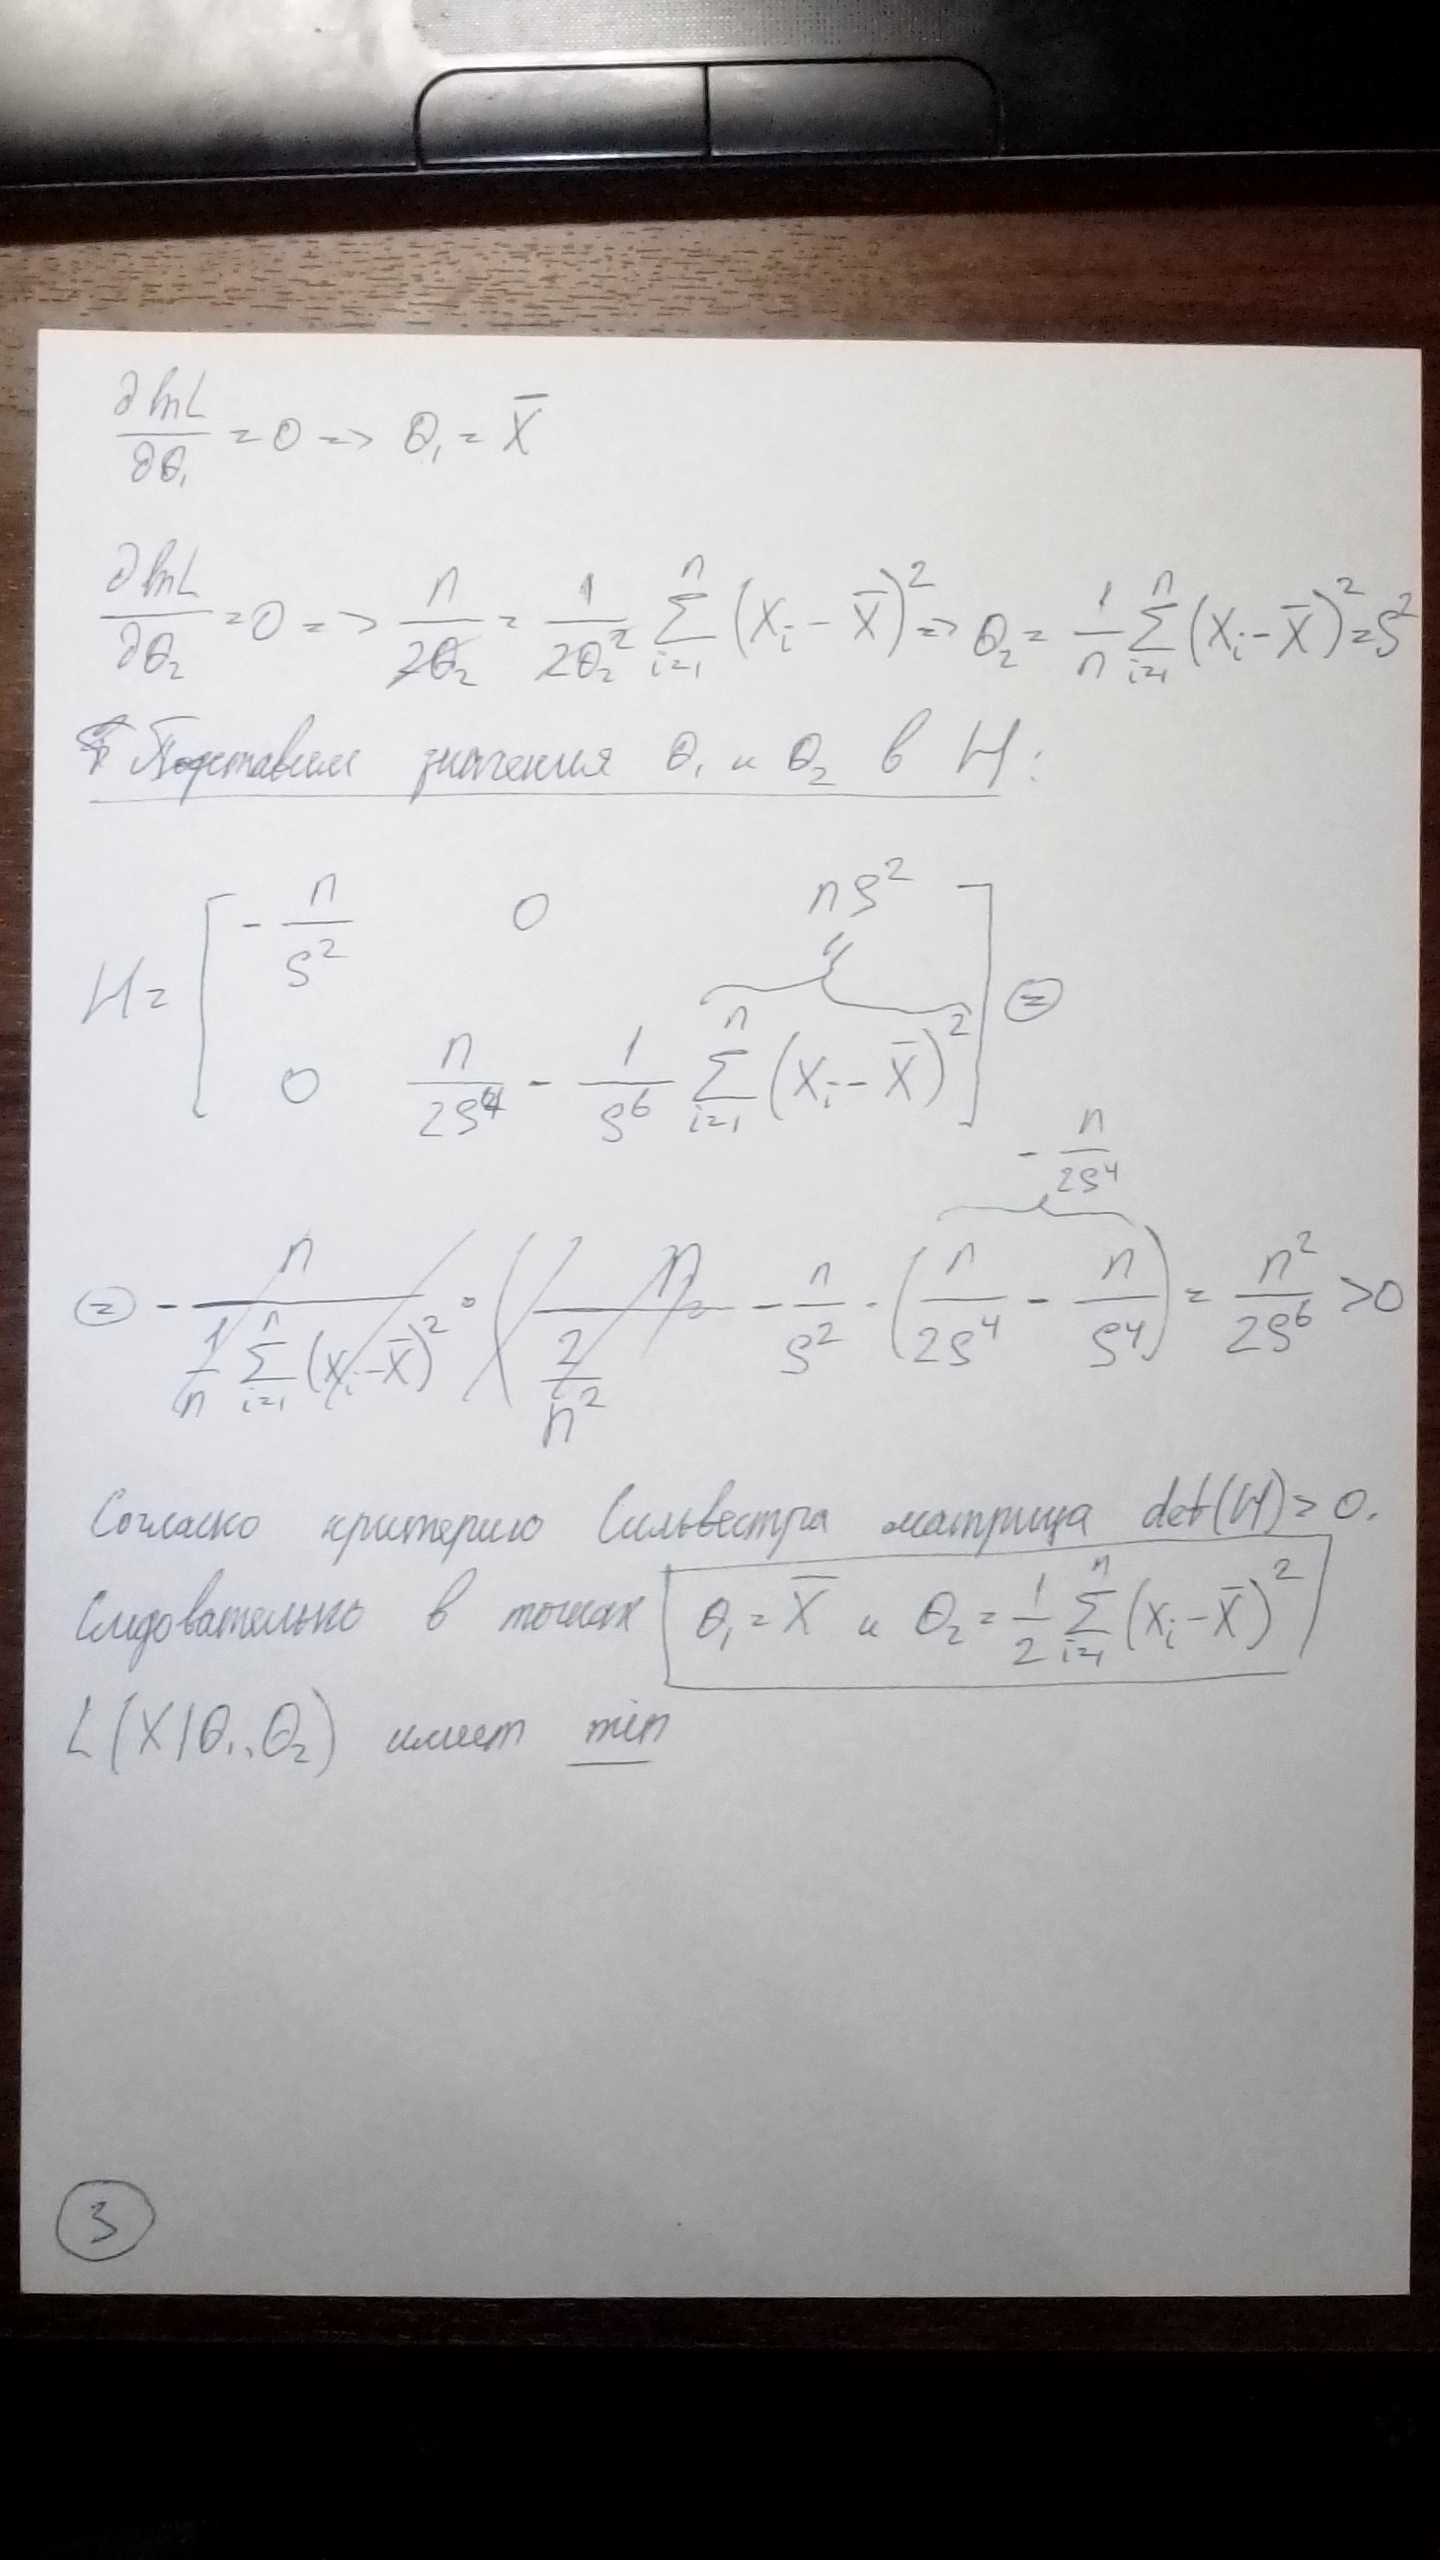 ∂lnL/∂θ₁ = 0 => θ₁ = X̄
∂lnL/∂θ₂ = 0 => n/2θ₂ = 1/2θ₂² ∑ᵢ₌₁ⁿ (Xᵢ - X̄)² => θ₂ = 1/n ∑ᵢ₌₁ⁿ (Xᵢ - X̄)² = S²
Подставим значения θ₁ и θ₂ в H:
H = [ -n/S² 0 nS²
0 n/2S⁴ - 1/S⁶ ∑ᵢ₌₁ⁿ (Xᵢ - X̄)² ] =
-n/2S⁴
= - n/S² · (n/2S⁴ - n/S⁴) = n²/2S⁶ > 0
Согласно критерию Сильвестра матрица det(H) > 0.
Следовательно в точках θ₁ = X̄ и θ₂ = 1/2 ∑ᵢ₌₁ⁿ (Xᵢ - X̄)²
L(X|θ₁,θ₂) имеет min
3